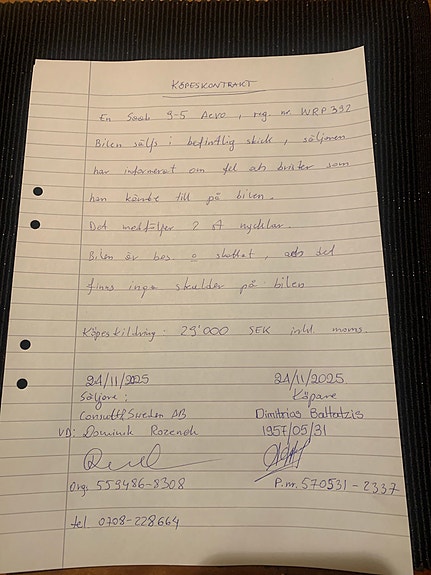 KÖPESKONTRAKT
En Saab 9-5 Aero, reg nr WRP392
Bilen säljs i befintlig skick, säljaren
har informerat om fel och brister som
han känner till på bilen.
Det medföljer 2 st nycklar.
Bilen är bes o skattat, och det
finns inga skulder på bilen
Köpeskilldring: 29'000 SEK inkl moms.
24/11/2025
Säljare:
Consultth Sweden AB
VD: Dominik Rozenek
Org: 559486-8308
tel. 0708-228664
24/11/2025
Köpare
Dimitrios Baltatzis
1957/05/31
P.nr. 570531-2337